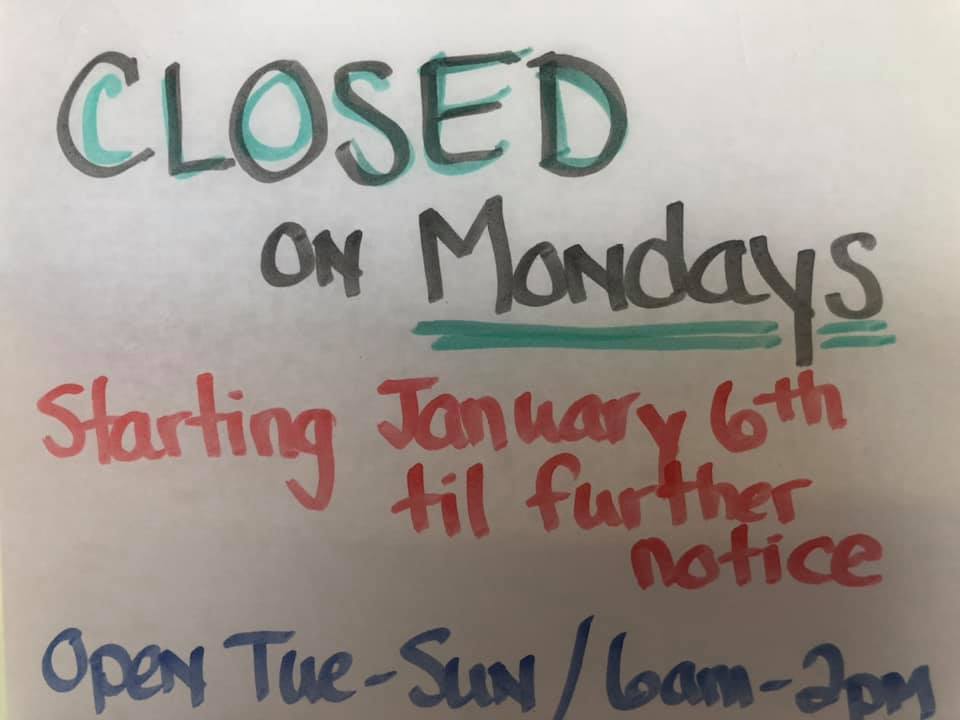 CLOSED
ON Mondays
Starting January 6th
til further
notice
Open Tue-Sun/6am-2pm